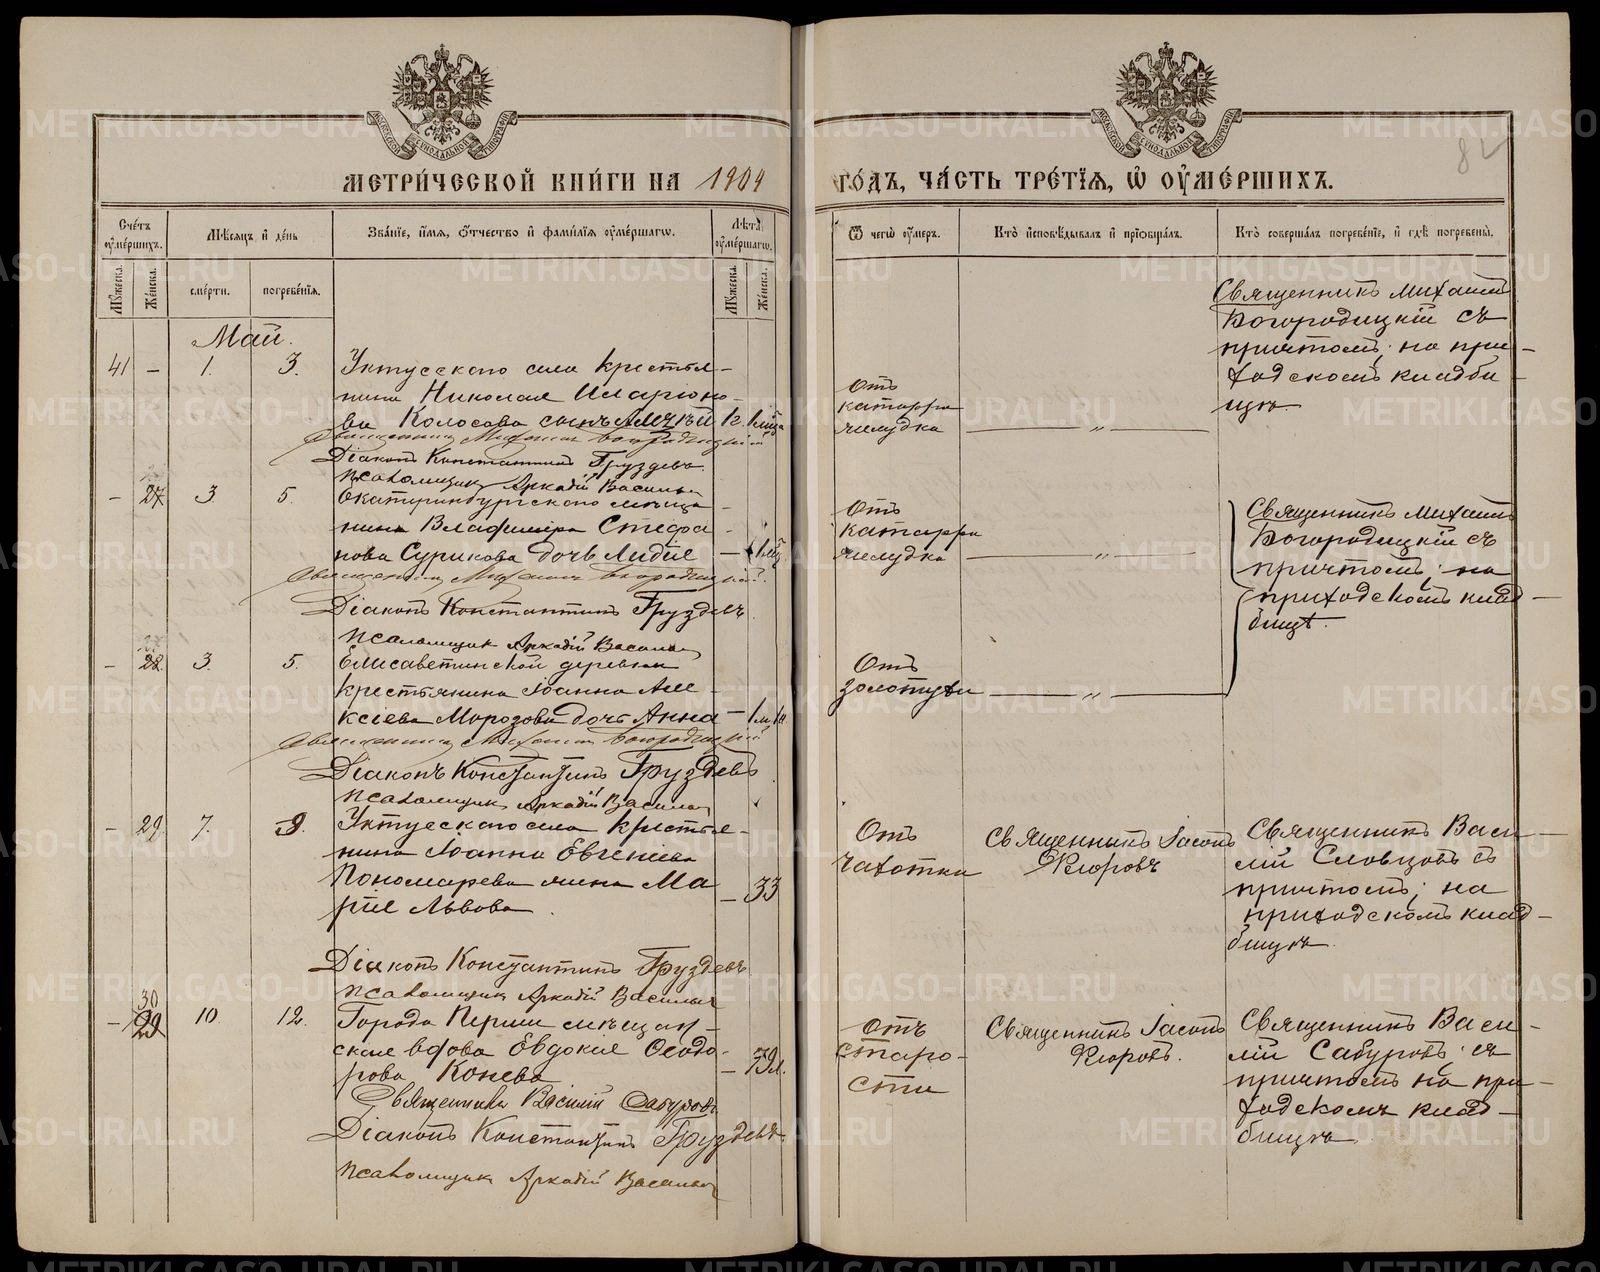 МЕТРИ́ЧЕСКОЙ КНИ́ГИ НА 1904
ГО́ДЪ, ЧА́СТЬ ТРЕ́ТІЯ, Ѽ ОУ҆МЕ́РШИХЪ.
Сче́тъ оу҆ме́ршихъ.
Мѣсяцъ и҆ де́нь
Зва́нїе, и҆́мя, ѻ҆́тчество и҆ фами́лїя оу҆ме́ршагѡ.
Лѣта̀ оу҆ме́ршагѡ.
Ѿ чегѡ̀ оу҆́меръ.
Кто̀ и҆сповѣ́дывалъ и҆ прїѡбща́лъ.
Кто̀ соверша́лъ погребе́нїе, и҆ гдѣ̀ погребены̀.
Мꙋ́жеска.
Же́нска.
сме́рти.
погребе́нїя.
Мꙋ́жеска.
Же́нска.
Май.
41 — 1. 3. Уктусскаго села крестья-
нина Николая Иларіоно-
ва Колосова сынъ Алексѣй
Священникъ Михаилъ Богородицкій
Діаконъ Константинъ Груздевъ.
Псаломщикъ Аркадій Васильевъ
Отъ
катарра
желудка
— „ —
Священникъ Михаилъ
Богородицкій съ
причтомъ; на при-
ходскомъ кладби-
щѣ.
— 27 3 5. Екатеринбургскаго мѣща-
нина Владиміра Стефа-
нова Сурикова дочь Лидія
Священникъ Михаилъ Богородицкій.
Діаконъ Константинъ Груздевъ
Псаломщикъ Аркадій Васильевъ
Отъ
катарра
желудка
— „ —
Священникъ Михаилъ
Богородицкій съ
причтомъ; на
приходскомъ клад-
бищѣ.
— 28 3. 5. Елисаветинской деревни
крестьянина Іоанна Але-
ксіева Морозова дочь Анна
Священникъ Михаилъ Богородицкій
Діаконъ Константинъ Груздевъ
Псаломщикъ Аркадій Васильевъ
Отъ
золотухи
— „ —
— 29 7. 9. Уктусскаго села крестья-
нина Іоанна Евгеніева
Пономарева жена Ма
рія Львова. — 33
Діаконъ Константинъ Груздевъ
Псаломщикъ Аркадій Васильевъ
Отъ
чахотки
Священникъ Іасонъ
Флоровъ
Священникъ Васи-
лій Словцовъ съ
причтомъ; на
приходскомъ клад-
бищѣ.
30
— 29 10. 12. Города Перми мѣщан-
ская вдова Евдокія Ѳеодо-
рова Конева — 79 л.
Священникъ Василій Сабуровъ.
Діаконъ Константинъ Груздевъ
Псаломщикъ Аркадій Васильевъ
Отъ
старо-
сти
Священникъ Іасонъ
Флоровъ.
Священникъ Васи-
лій Сабуровъ; съ
причтомъ на при-
ходскомъ клад-
бищѣ.
METRIKI.GASO-URAL.RU